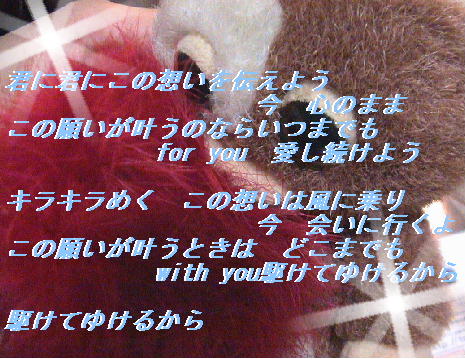 君に君にこの想いを伝えよう
今　心のまま
この願いが叶うのならいつまでも
for you　愛し続けよう
キラキラめく　この想いは風に乗り
今　会いに行くよ
この願いが叶うときは　どこまでも
with you駆けてゆけるから
駆けてゆけるから